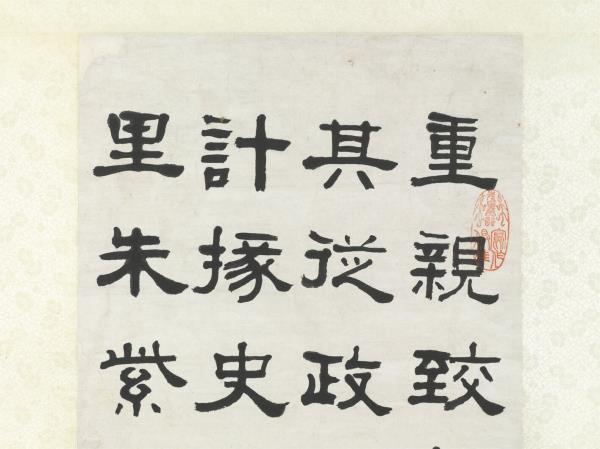 重親致
其従政
計掾史
里朱紫